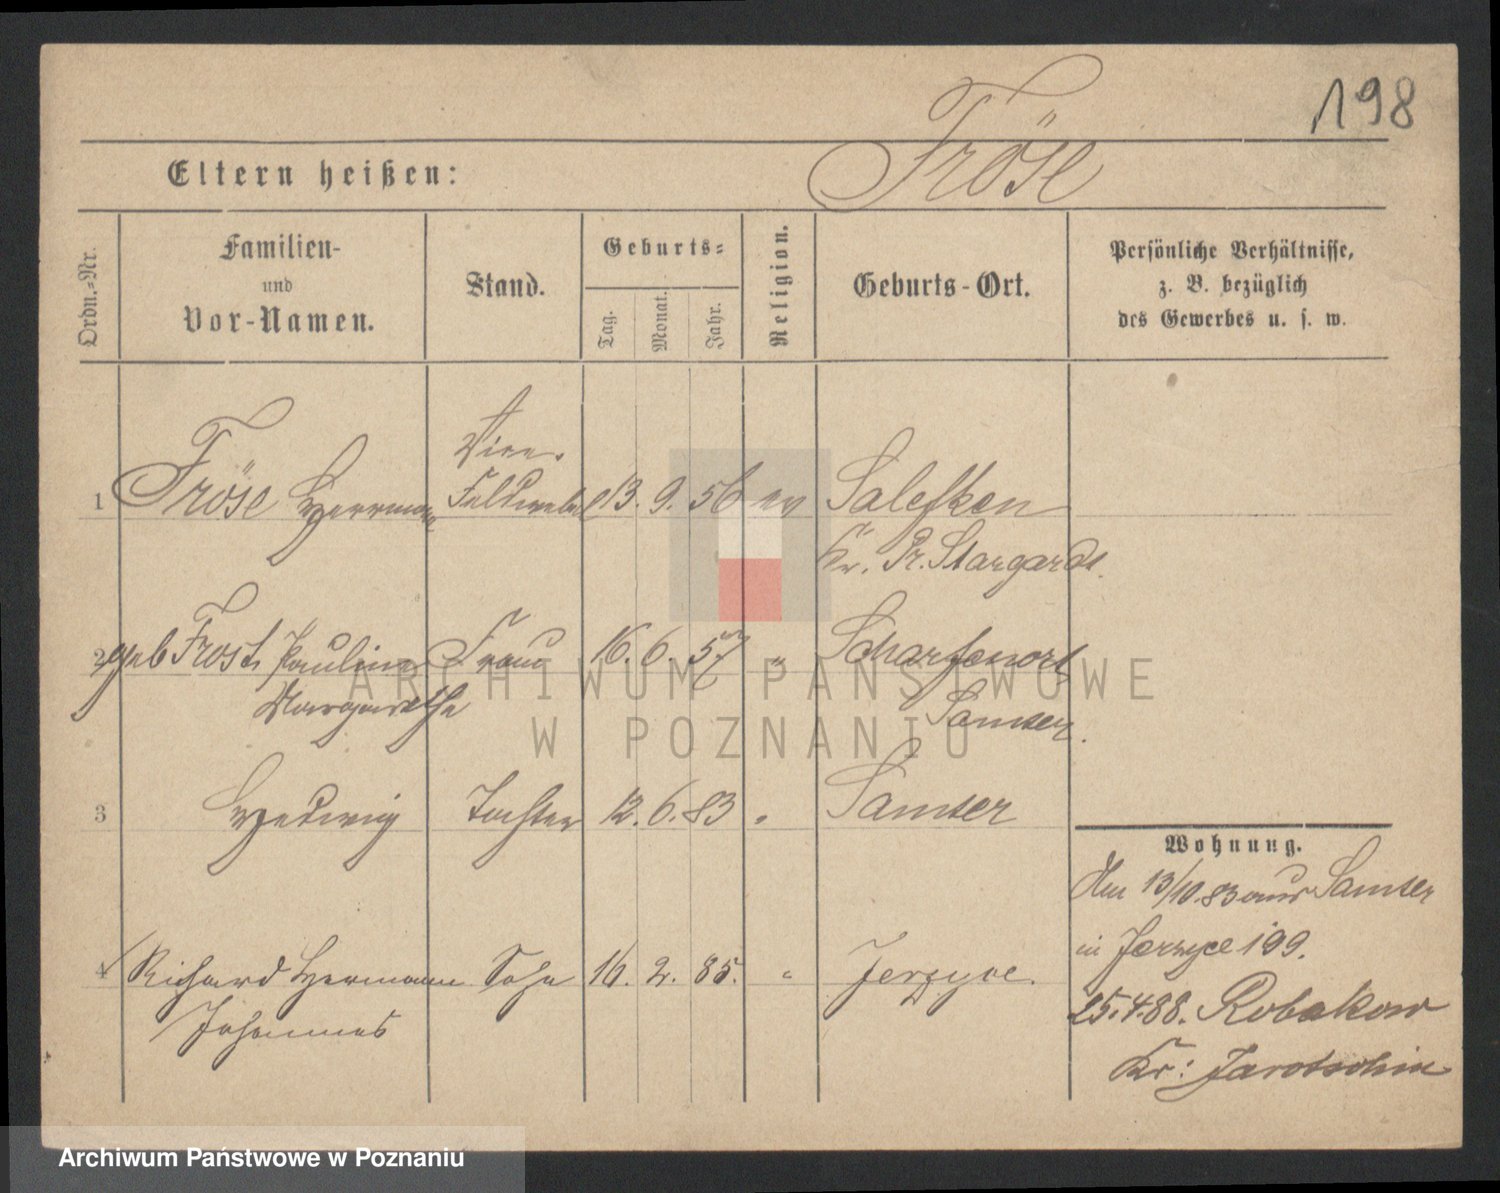 198
Eltern heißen: Fröse
Ordn.-Nr.
Familien-
und
Vor-Namen.
Stand.
Geburts-
Tag. Monat. Jahr.
Religion.
Geburts-Ort.
Persönliche Verhältnisse,
z. B. bezüglich
des Gewerbes u. s. w.
Vice-
1 Fröse Herrmann Feldwebel 13. 9. 56 ev Salesken
Kr. Pr. Stargardt.
2 geb Frost, Pauline Frau 16. 6. 57 " Scharfenort
Margarethe Samter.
3 Hedwig Tochter 12. 6. 83 " Samter
Wohnung.
Am 13/10.83 aus Samter
in Jerzyce 199.
4 Richard Hermann Sohn 16. 2. 85. " Jerzyce.
Johannes
25.4.88. Robakow
Kr: Jarotschin
ARCHIWUM PAŃSTWOWE
W POZNANIU
Archiwum Państwowe w Poznaniu